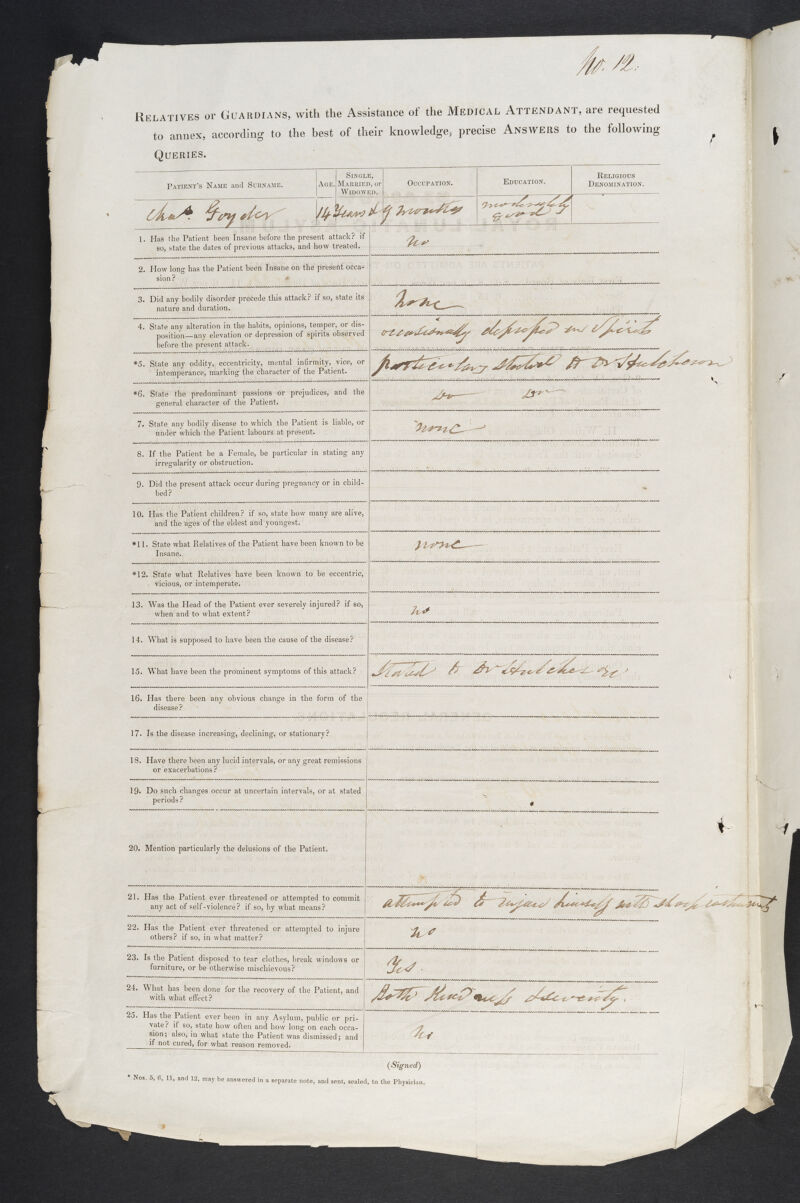 No. 12.
RELATIVES or GUARDIANS, with the Assistance of the MEDICAL ATTENDANT, are requested
to annex, according to the best of their knowledge, precise ANSWERS to the following
QUERIES.
PATIENT'S NAME and SURNAME. AGE. SINGLE, MARRIED, or WIDOWED. OCCUPATION. EDUCATION. RELIGIOUS DENOMINATION.
Chas. Goyder 14 Years & 9 months moderately
good
1. Has the Patient been Insane before the present attack? if
so, state the dates of previous attacks, and how treated.
No
2. How long has the Patient been Insane on the present occa-
sion?
3. Did any bodily disorder precede this attack? if so, state its
nature and duration.
None
4. State any alteration in the habits, opinions, temper, or dis-
position—any elevation or depression of spirits observed
before the present attack.
occasionally depressed in Spirits
*5. State any oddity, eccentricity, mental infirmity, vice, or
intemperance, marking the character of the Patient.
particulars stated to Dr Hutcheson
*6. State the predominant passions or prejudices, and the
general character of the Patient.
Do Do
7. State any bodily disease to which the Patient is liable, or
under which the Patient labours at present.
none
8. If the Patient be a Female, be particular in stating any
irregularity or obstruction.
9. Did the present attack occur during pregnancy or in child-
bed?
10. Has the Patient children? if so, state how many are alive,
and the ages of the eldest and youngest.
*11. State what Relatives of the Patient have been known to be
Insane.
none
*12. State what Relatives have been known to be eccentric,
vicious, or intemperate.
13. Was the Head of the Patient ever severely injured? if so,
when and to what extent?
no
14. What is supposed to have been the cause of the disease?
15. What have been the prominent symptoms of this attack?
Stated to Dr Hutcheson
16. Has there been any obvious change in the form of the
disease?
17. Is the disease increasing, declining, or stationary?
18. Have there been any lucid intervals, or any great remissions
or exacerbations?
19. Do such changes occur at uncertain intervals, or at stated
periods?
20. Mention particularly the delusions of the Patient.
21. Has the Patient ever threatened or attempted to commit
any act of self-violence? if so, by what means?
attempted to injure himself with sharp instruments
22. Has the Patient ever threatened or attempted to injure
others? if so, in what matter?
no
23. Is the Patient disposed to tear clothes, break windows or
furniture, or be otherwise mischievous?
Yes.
24. What has been done for the recovery of the Patient, and
with what effect?
Both Kindness & severity.
25. Has the Patient ever been in any Asylum, public or pri-
vate? if so, state how often and how long on each occa-
sion; also, in what state the Patient was dismissed; and
if not cured, for what reason removed.
No
(Signed)
* Nos. 5, 6, 11, and 12, may be answered in a separate note, and sent, sealed, to the Physician.